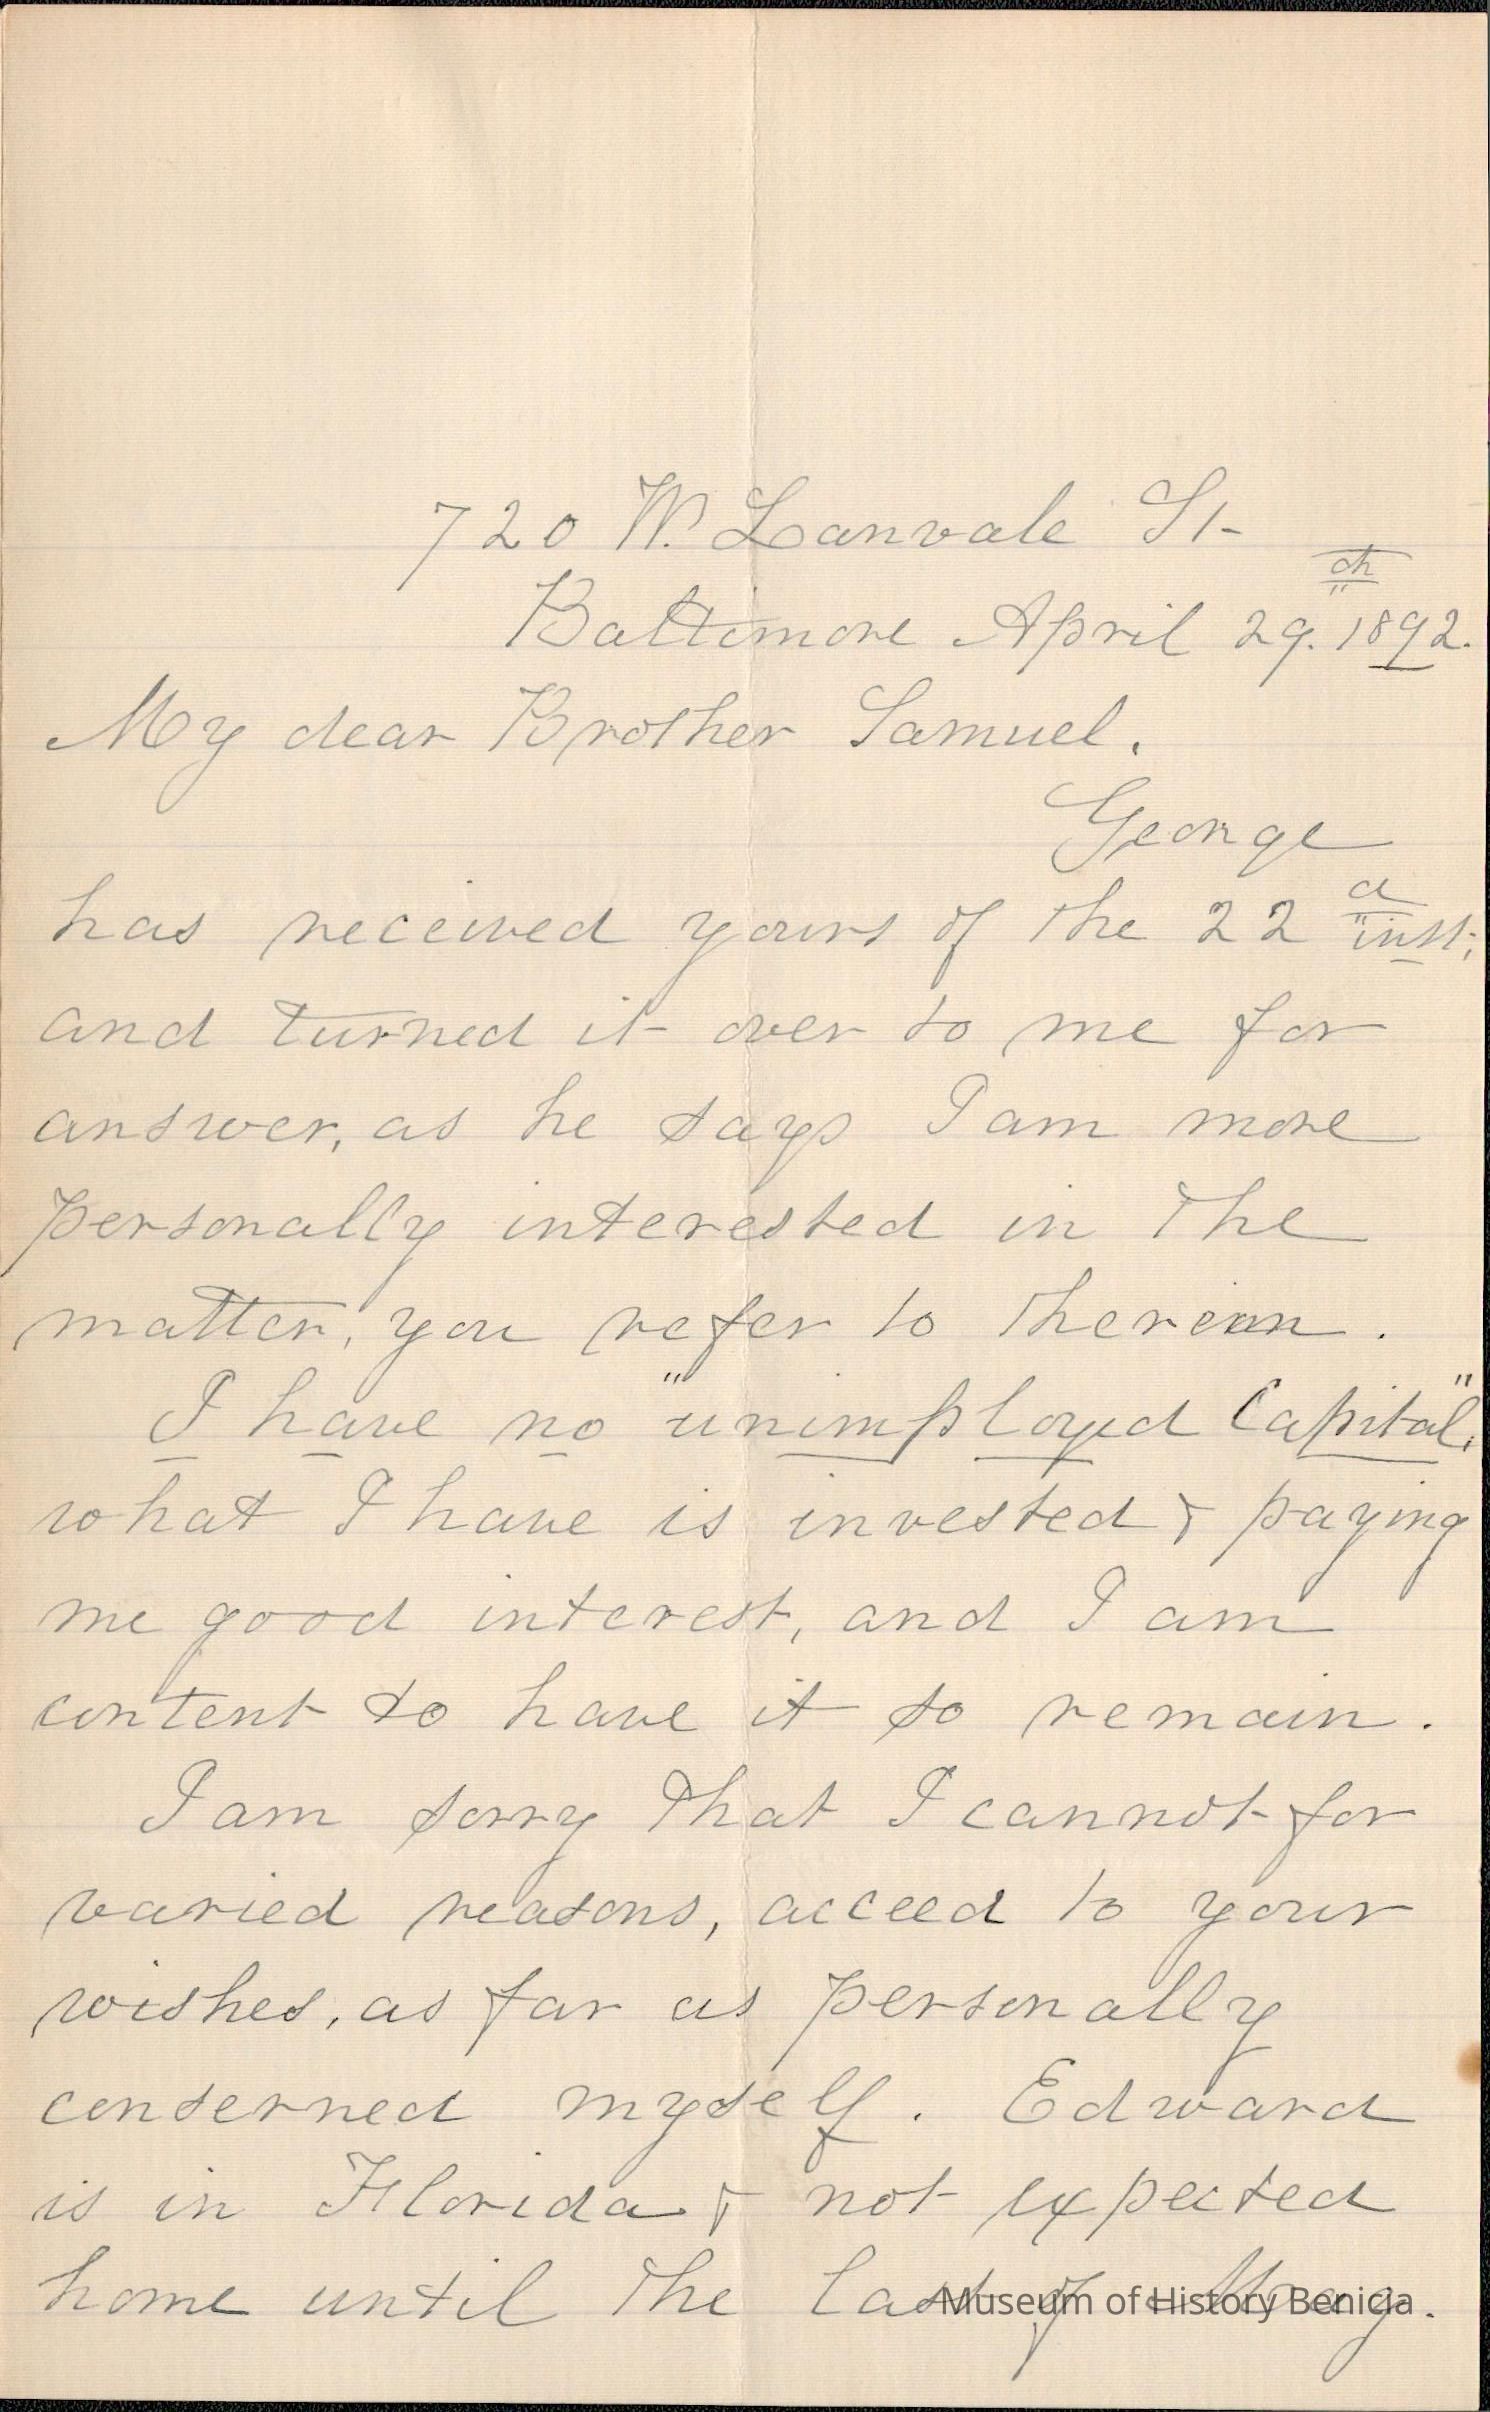 720 W. Lanvale St
Baltimore April 29.th 1892.
My dear Brother Samuel.
George
has received yours of the 22d inst;
and turned it over to me for
answer, as he says I am more
personally interested in the
matter, you refer to therein.
I have no "unimployed Capital".
what I have is invested & paying
me good interest, and I am
content to have it so remain.
I am sorry that I cannot for
varied reasons, acceed to your
wishes, as far as personally
conserned myself. Edward
is in Florida & not expected
home until the last of May.
Museum of History Benicia